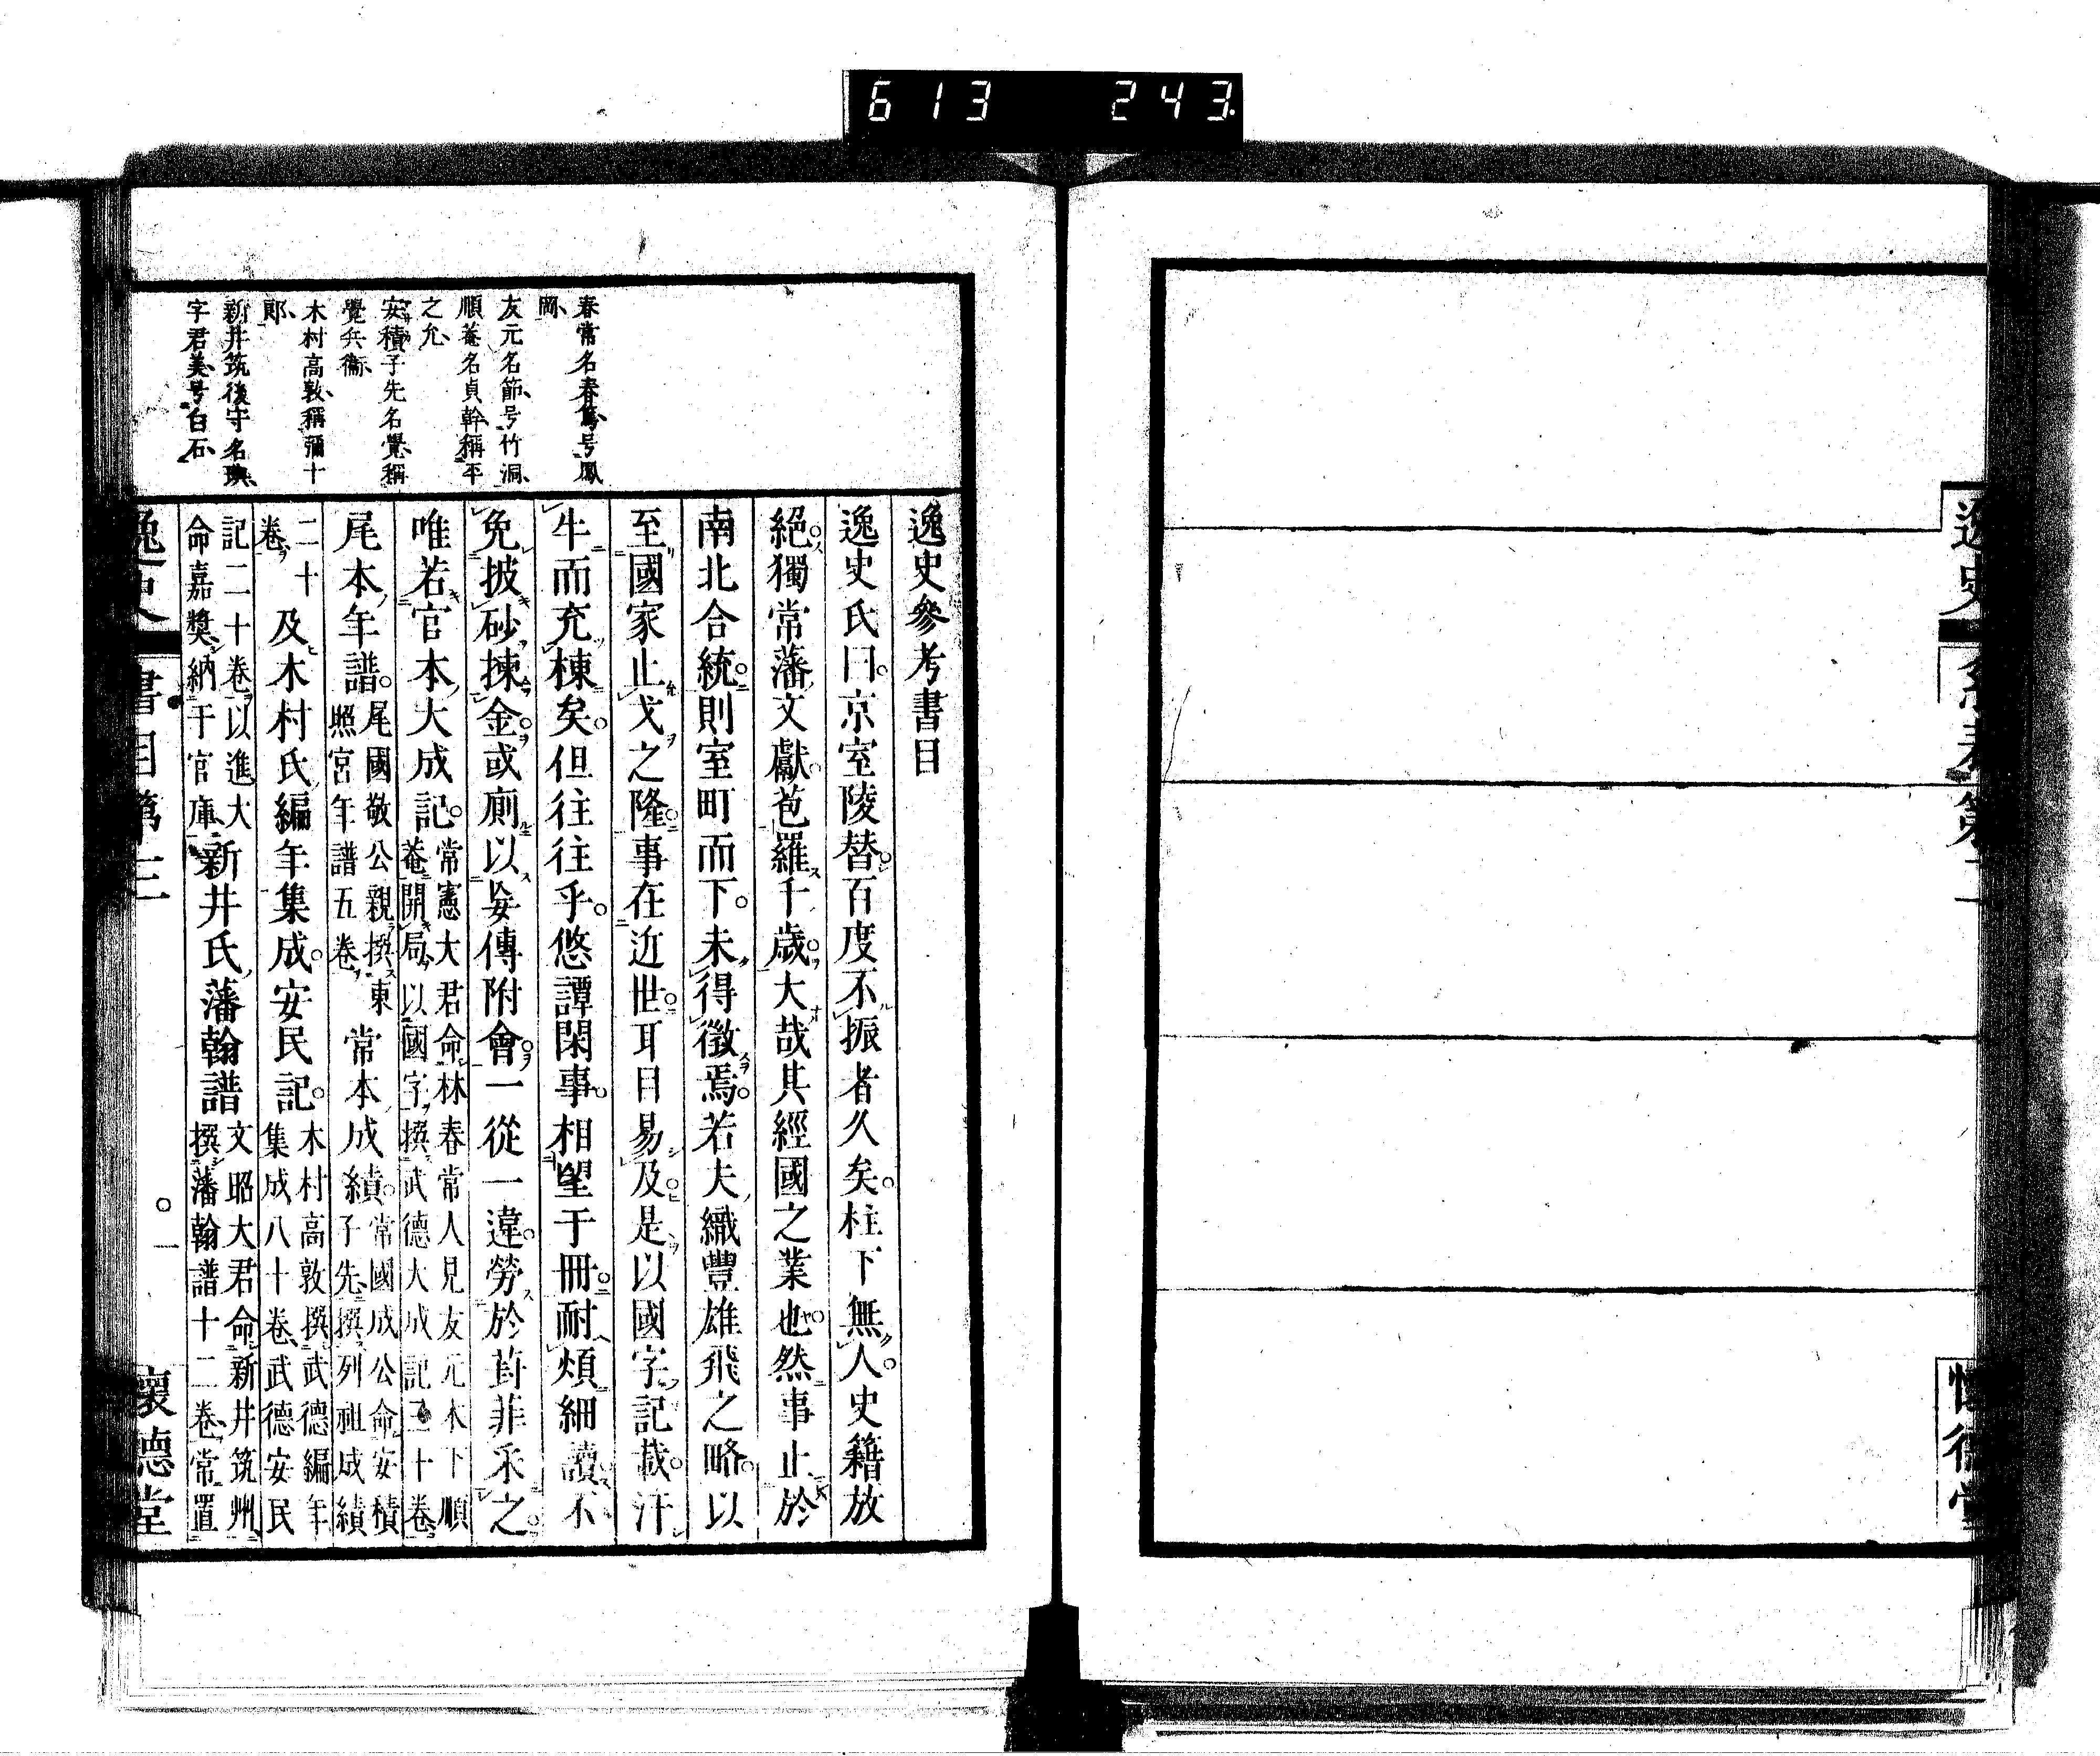 613 243.
逸史
第二
逸史參考書目
逸史氏曰京室陵替百度不振者久矣柱下無人史籍放
絕獨常藩文獻苞羅千歲大哉其經國之業也然事止於
南北合統則室町而下未得徵焉若夫織豐雄飛之略以
至國家止戈之隆事在近世耳目易及是以國字記載汗
牛而充棟矣但往往乎悠譚閑事相望于冊耐煩細讀不
免披砂揀金或廁以妄傳附會一從一違勞於葑菲采之
唯若官本大成記常憲大君命林春常人見友元木下順
菴開局以國字撰武德大成記三十卷
尾本年譜尾國敬公親撰東
照宮年譜五卷常本成績常國成公命安積
子先撰列祖成績
二十
卷及木村氏編年集成安民記木村高敦撰武德編年
集成八十卷武德安民
記二十卷以進大
命嘉獎納于官庫新井氏藩翰譜文昭大君命新井筑州
撰藩翰譜十二卷常置
春常名春篤号鳳
岡
友元名節号竹洞
順菴名貞幹稱平
之允
安積子先名覺稱
覺兵衞
木村高敦稱彌十
郎
新井筑後守名璵
字君美号白石
逸史
書目第三
一
懷德堂